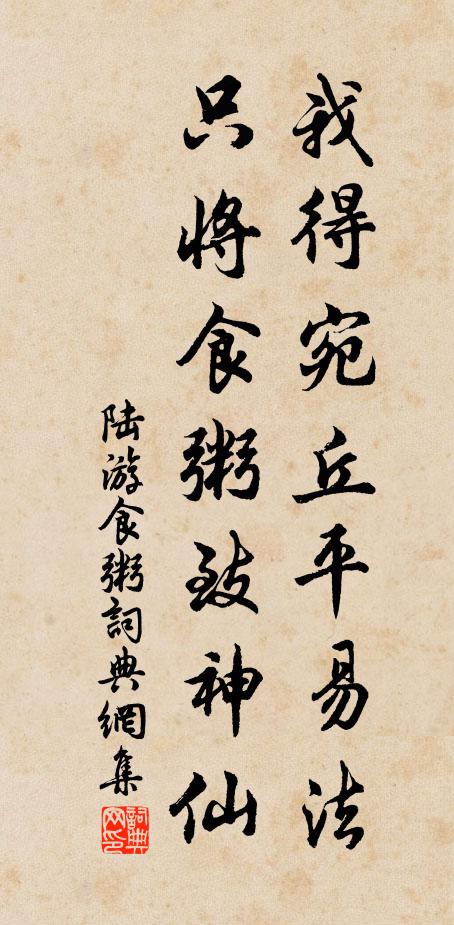 我得宛丘平易法
只將食粥致神仙
陆游食粥詞典網集
詞典网印